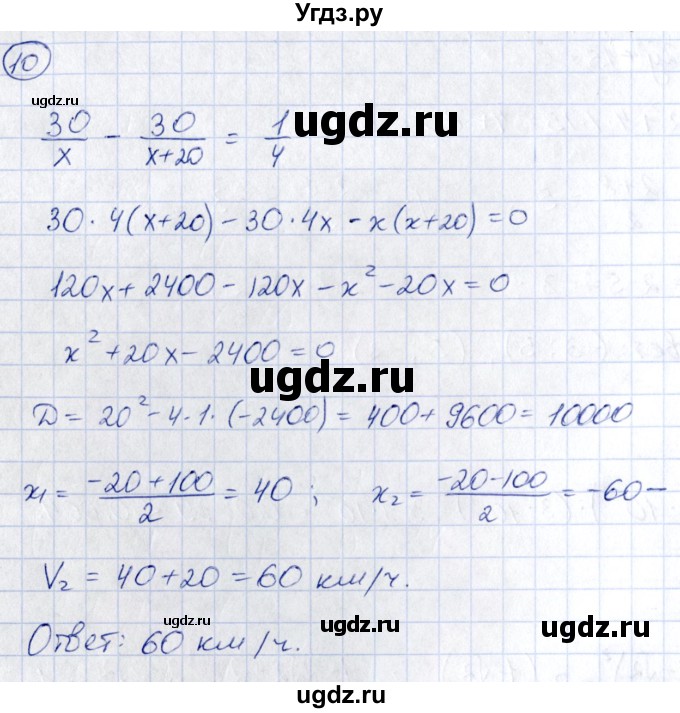 Угдз.ру
10
ugdz.ru
30/x - 30/(x+20) = 1/4
ugdz.ru
30·4(x+20)-30·4x-x(x+20)=0
120x+2400-120x-x²-20x=0
x²+20x-2400=0
ugdz.ru
D=20²-4·1·(-2400)=400+9600=10000
x₁=(-20+100)/2=40; x₂=(-20-100)/2=-60-
ugdz.ru
V₂=40+20=60 км/ч.
ugdz.ru ugdz.ru ugdz.ru
Ответ: 60 км/ч.
ugdz.ru